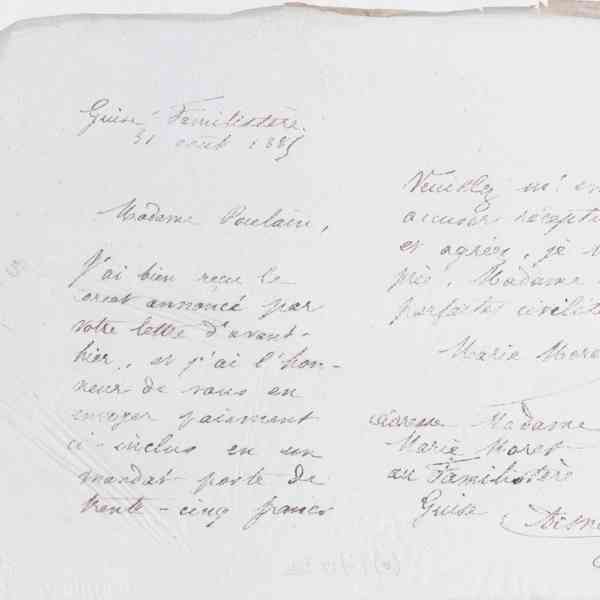 Guise Familistère
31 août 1885
Madame Poulain,
J'ai bien reçu le
annoncé par
votre lettre d'avant-
hier, et j'ai l'hon-
neur de vous en
envoyer paiement
ci-inclus en un
mandat poste de
trente-cinq francs
Veuillez m'en
accuser récepti
et agréer, je v
prie, Madame
parfaites civilité
Marie More
Madame
Marie Moret
au Familistère
Guise
Aisn